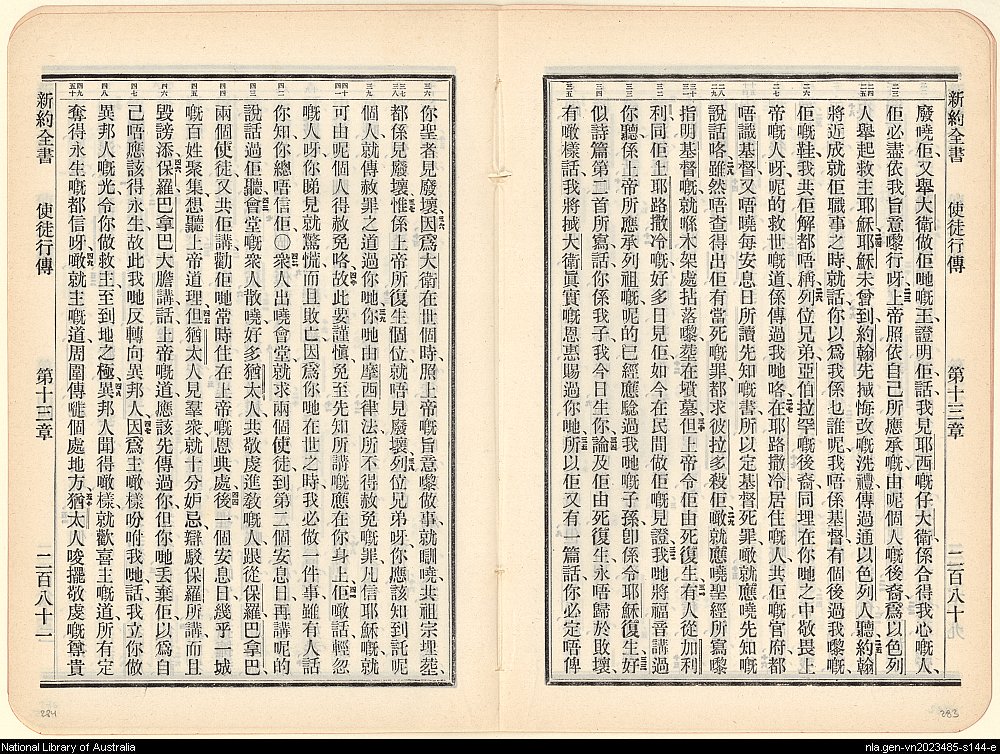 新約全書 使徒行傳 第十三章 二百八十
廢嘵佢又舉大衛做佢哋嘅王證明佢話我見耶西嘅仔大衛係合得我心嘅人
佢必盡依我旨意嚟行呀上帝照依自己所應承嘅由呢個人嘅後裔爲以色列
人舉起救主耶穌耶穌未曾到約翰先𢬿悔改嘅洗禮傳過通以色列人聽約翰
將近成就佢職事之時就話你以爲我係乜誰呢我唔係基督有個後過我嚟嘅
佢嘅鞋我共佢解都唔稱列位兄弟亞伯拉罕嘅後裔同埋在你哋之中敬畏上
帝嘅人呀呢的救世嘅道係傳過我哋咯在耶路撒冷居住嘅人共佢嘅官府都
唔識基督又唔嘵每安息日所讀先知嘅書所以定基督死罪嗽就應嘵先知嘅
說話咯雖然唔查得出佢有當死嘅罪都求彼拉多殺佢嗽就應嘵聖經所寫嚟
指明基督嘅就喺木架處拈落嚟葬在墳墓但上帝令佢由死復生有人從加利
利同佢上耶路撒冷嘅好多日見佢如今在民間做佢嘅見證我哋將福音講過
你聽係上帝所應承列祖嘅呢的已經應驗過我哋嘅子孫卽係令耶穌復生好
似詩篇第二首所寫話你係我子我今日生你論及佢由死復生永唔歸於敗壞
有噉樣話我將𢬿大衛眞實嘅恩惠賜過你哋所以佢又有一篇話你必定唔俾
你聖者見廢壞因爲大衛在世個時照上帝嘅旨意嚟做事就瞓嘵共祖宗埋葬
都係見廢壞惟係上帝所復生個位就唔見廢壞列位兄弟呀你應該知到託呢
個人就傳赦罪之道過你哋你哋由摩西律法所不得赦免嘅罪凡信耶穌嘅就
可由呢個人得赦免咯故此要謹愼免至先知所講嘅應在你身上佢嗽話輕忽
嘅人呀你睇見就驚慌而且敗亡因爲你哋在世之時我必做一件事雖有人話
你知你總唔信佢〇衆人出嘵會堂就求兩個使徒到第二個安息日再講呢的
說話過佢聽會堂嘅衆人散嘵好多猶太人共敬虔進敎嘅人跟從保羅巴拿巴
兩個使徒又共佢講勸佢哋常時住在上帝嘅恩典處後一個安息日幾乎一城
嘅百姓聚集想聽上帝道理但猶太人見羣衆就十分妒忌辯駁保羅所講而且
毀謗添保羅巴拿巴大膽講話上帝嘅道應該先傳過你但你哋丟棄佢以爲自
己唔應該得永生故此我哋反轉向異邦人因爲主噉樣吩咐我哋話我立你做
異邦人嘅光令你做救主至到地之極異邦人聞得噉樣就歡喜主嘅道所有定
奪得永生嘅都信呀噉就主嘅道周圍傳徧個處地方猶太人唆擺敬虔嘅尊貴
新約全書 使徒行傳 第十三章 二百八十一
284
283
National Library of Australia
nla.gen-vn2023485-s144-e